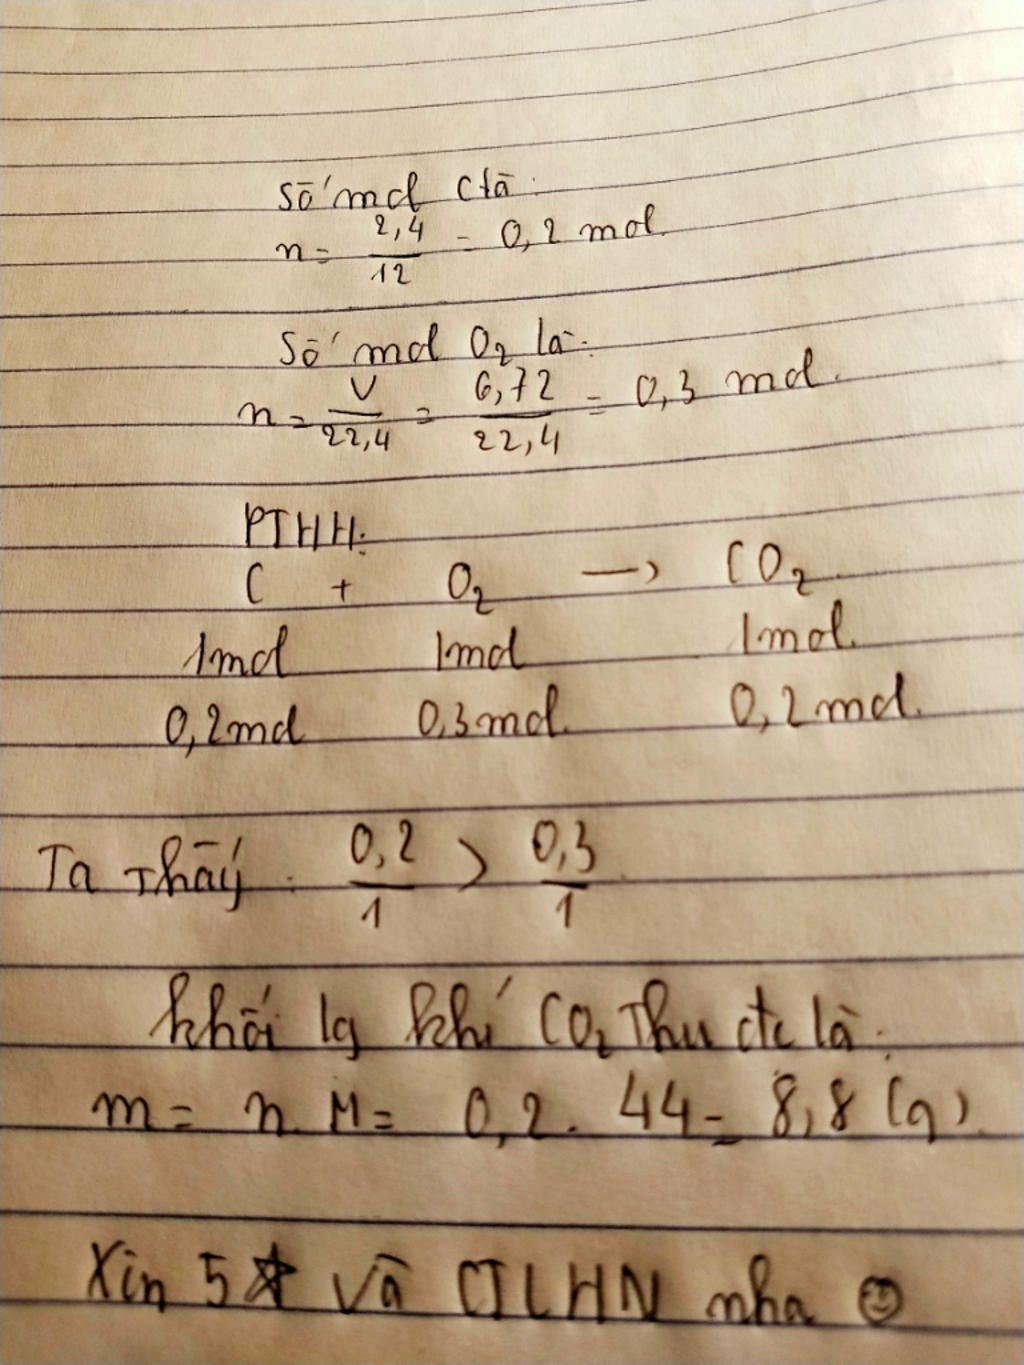 Số mol C là:
n = 2,4/12 = 0,2 mol.
Số mol O₂ là:
n = V/22,4 = 6,72/22,4 = 0,3 mol.
PTHH:
C + O₂ → CO₂
1mol 1mol 1mol.
0,2mol 0,3mol. 0,2mol.
Ta thấy: 0,2/1 > 0,3/1
khối lg khí CO₂ thu đc là:
m = n.M = 0,2. 44 = 8,8 (g).
Xin 5 ★ và CTLHN nha ☺